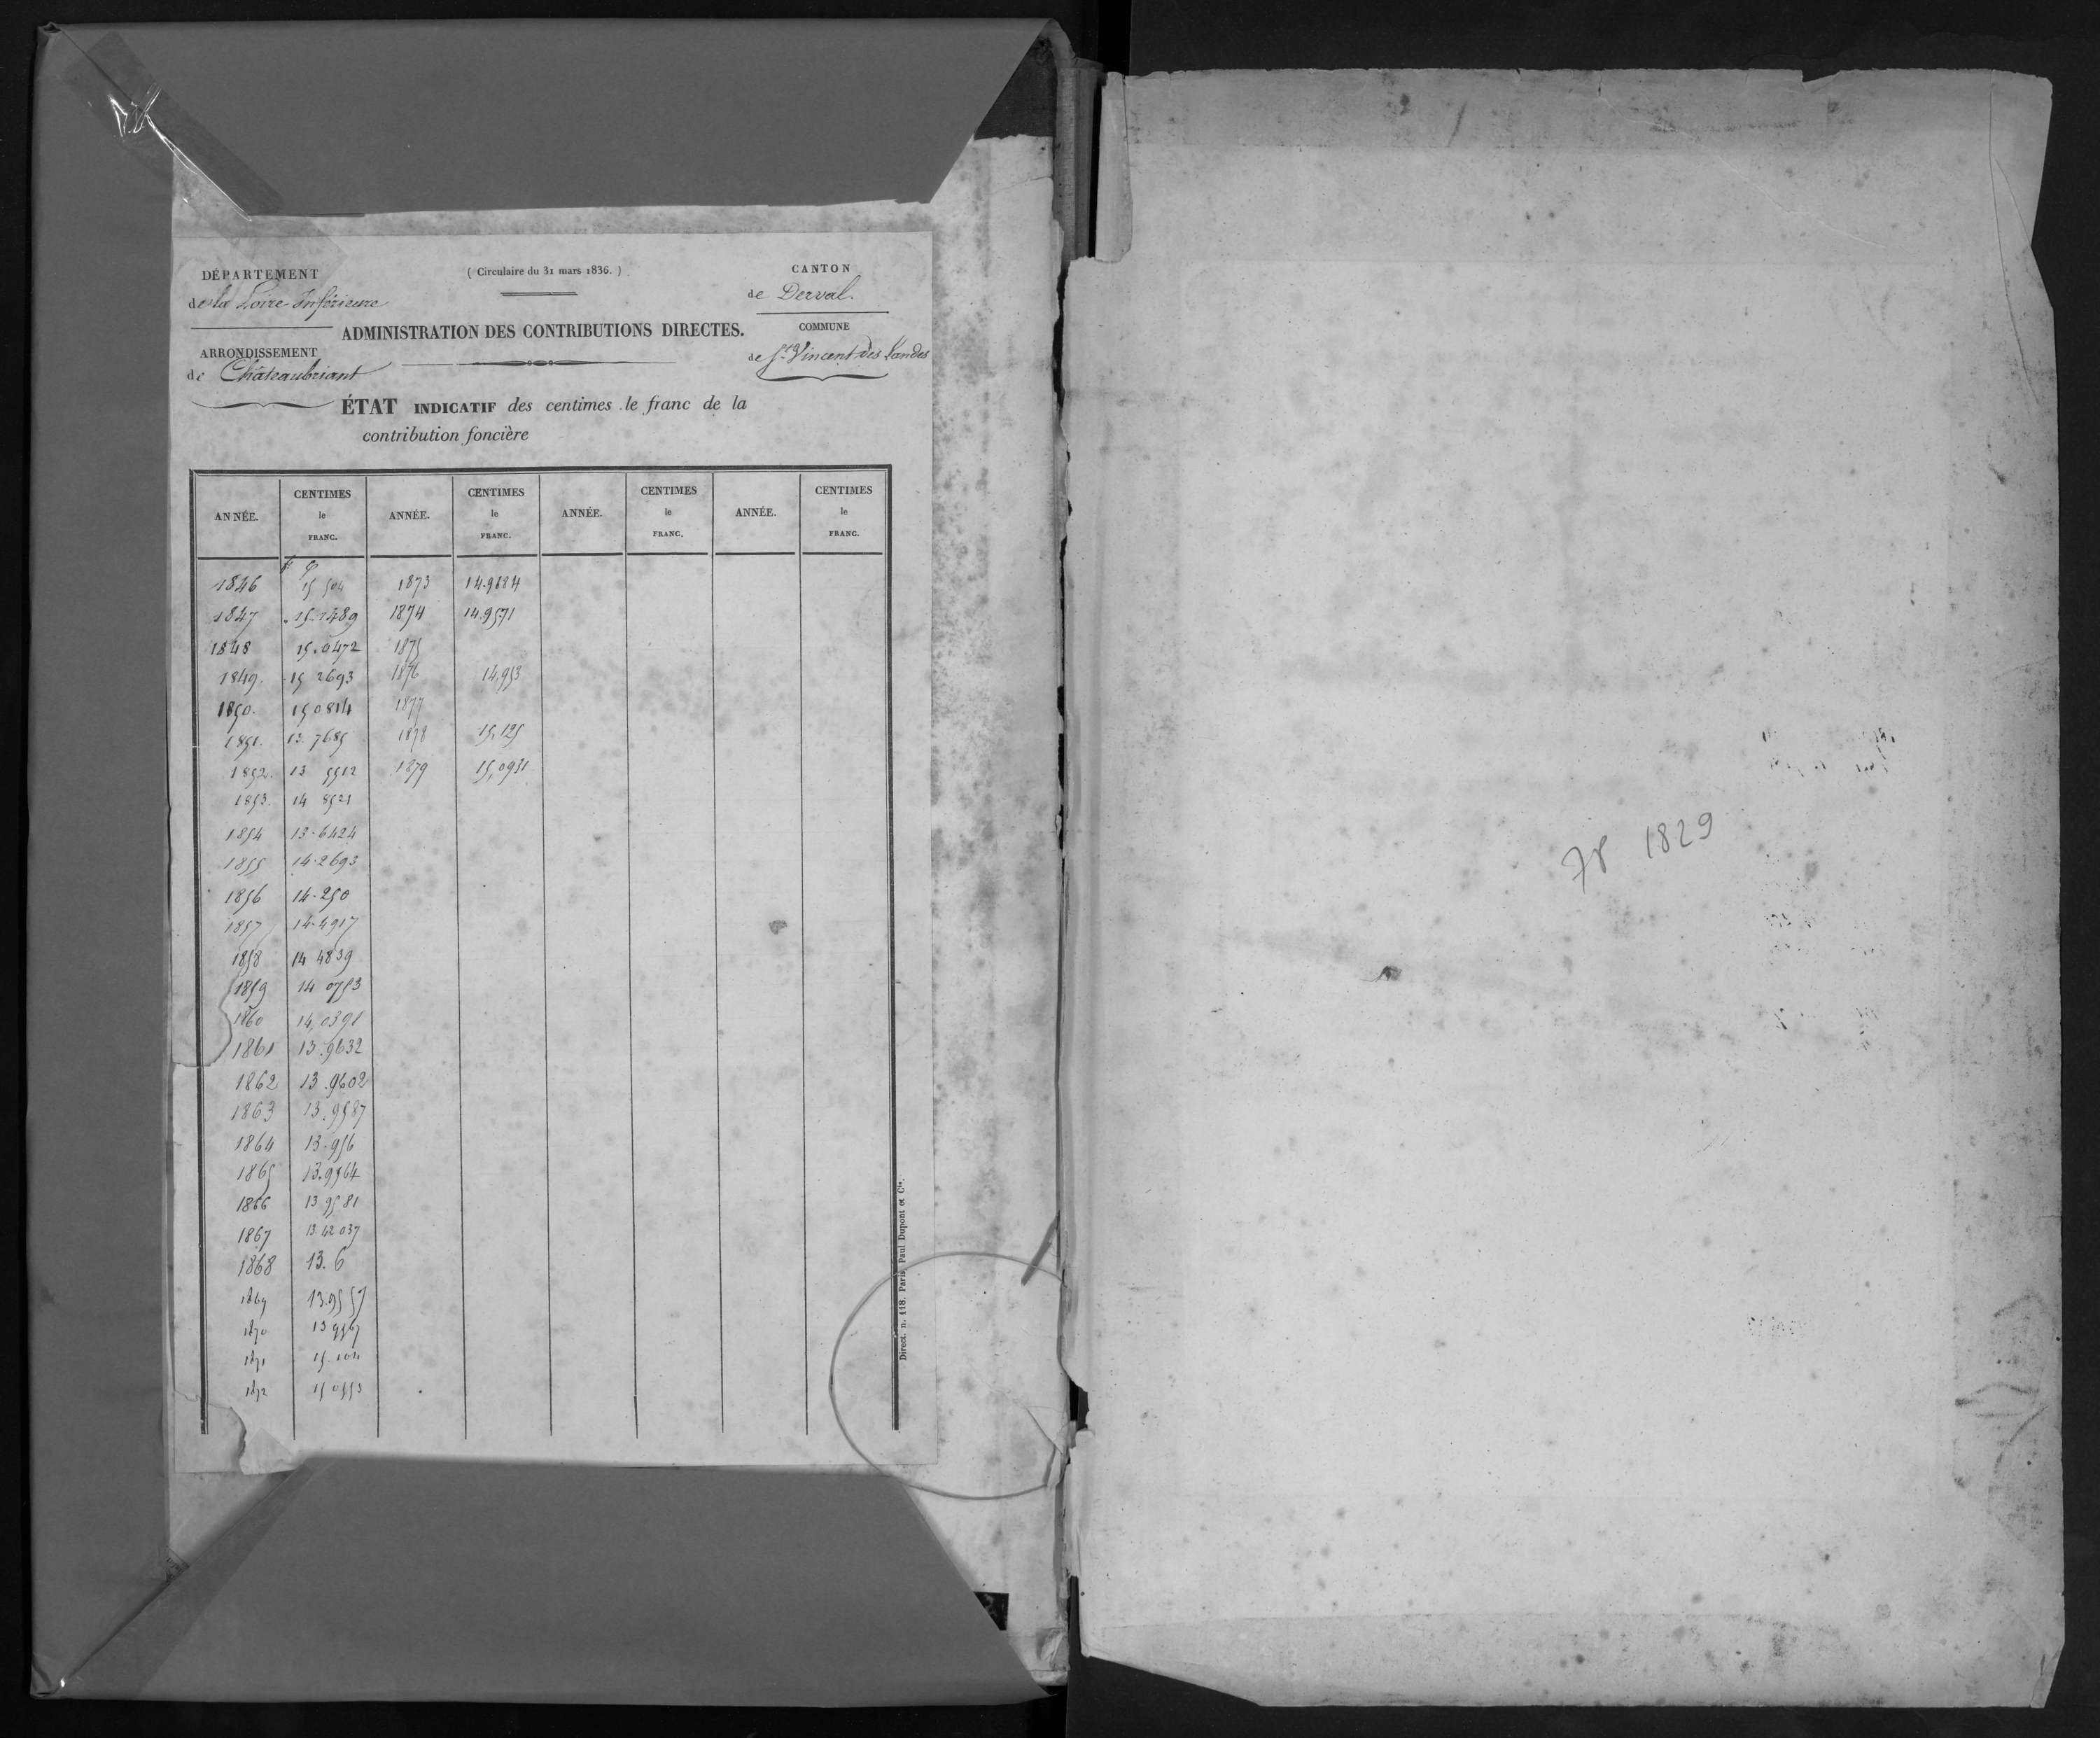 DÉPARTEMENT
de la Loire-Inférieure
ARRONDISSEMENT
de Châteaubriant
( Circulaire du 31 mars 1836. )
ADMINISTRATION DES CONTRIBUTIONS DIRECTES.
CANTON
de Derval.
COMMUNE
de St Vincent des Landes
ÉTAT INDICATIF des centimes le franc de la
contribution foncière
ANNÉE. CENTIMES le FRANC. ANNÉE. CENTIMES le FRANC. ANNÉE. CENTIMES le FRANC. ANNÉE. CENTIMES le FRANC.
1846 15 504 1873 14.9684
1847 15.1489 1874 14.9571
1848 15.0472 1875
1849. 15 2693 1876 14,953
1850. 15 0814 1877
1851. 13.7685 1878 15,125
1852. 13 5512 1879 15,0931
1853. 14 8521
1854 13.6424
1855 14.2693
1856 14.250
1857 14.4917
1858 14 4839
1859 14 0753
1860 14,0391
1861 13.9632
1862 13.9602
1863 13.9587
1864 13.956
1865 13.9564
1866 13 9581
1867 13.42 037
1868 13.6
1869 13.9557
1870 13 9567
1871 15.104
1872 15 0553
Direct. n. 118. Paris, Paul Dupont et Cie.
1829